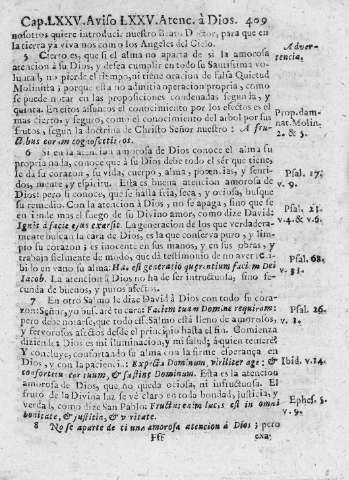 Cap. LXXV. Aviso LXXV. Atenc. à Dios. 409
nosotros quiere introducir nuestro Beato Doctor, para que en
la tierra ya viva nos como los Angeles del Cielo.
5 Cierto es, que si el alma no aparta de sì la amorosa
atencion à su Dios, y desea cumplir en todo su Santissima vo-
luntad, no pierde el tiempo, ni tiene oracion de falsa Quietud
Molinista; porque esta no admitia operacion propria, como
se puede notar en las proposiciones condenadas segunda, y
quinta. En estos assuntos el conocimiento por los efectos es el
mas cierto, y seguro, como el conocimiento del arbol por sus
frutos, segun la doctrina de Christo Señor nuestro: A fru-
ctibus eorum cognoscetis eos.
6 Si en la atencion amorosa de Dios conoce el alma su
propria nada, conoce que à su Dios debe todo el sèr que tiene,
se da su corazon, su vida, cuerpo, alma, potencias, y senti-
dos, mente, y espiritu. Esta es buena atencion amorosa de
Dios: pero si conoce, que se halla fria, seca, y ociosa, busque
su remedio. Con la atencion à Dios no se apaga, sino que se
enciende mas el fuego de su Divino amor, como dize David:
Ignis à facie ejus exarsit. La generacion de los que verdadera-
mente buscan la cara de Dios, es la que conserva puro, y lim-
pio su corazon; es inocente en sus manos, y en sus obras, y
trabaja fielmente de modo, que dà testimonio de no aver reci-
bido en vano su alma: Hæc est generatio quærentium faciem Dei
Iacob. La atencion à Dios no ha de ser infructuosa, sino fe-
cunda de buenos, y puros afectos.
7 En otro Salmo le dize David à Dios con todo su cora-
zon: Señor, yo buscarè tu cara: Faciem tuam Domine requiram:
pero debe notarse, que todo esse Salmo està lleno de amorosos,
y fervorosos afectos desde el principio hasta el fin. Comienza
diziendo: Dios es mi iluminacion, y mi salud; à quien temerè?
Y concluye, confortando su alma con la firme esperanza en
Dios, y con la paciencia: Expecta Dominum, viriliter age: &
confortetur cor tuum, & sustine Dominum. Esta es la atencion
amorosa de Dios, que no queda ociosa, ni infructuosa. El
fruto de la Divina luz se vè claro en toda bondad, justicia, y
verdad, como dize San Pablo: Fructus enim lucis est in omni
bonitate, & justitia, & veritate.
8 No se aparte de ti una amorosa atencion à Dios; pero
Fff exa-
Adver-
tencia.
Prop. dam-
nat. Molin.
2. & 5.
Psal. 17.
v. 9.
Psal. 23.
v. 4. & v. 6.
Psal. 68.
v. 31.
Psal. 26.
v. 1.
Ibid. v. 14.
Ephes. 5.
v. 9.